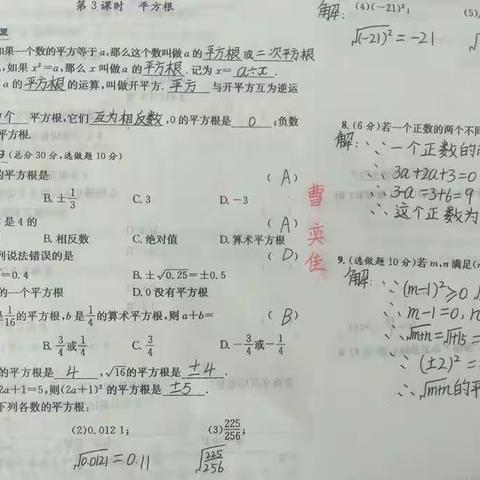 第3课时 平方根
如果一个数的平方等于a,那么这个数叫做a的平方根或二次平方根
,如果x²=a,那么x叫做a的平方根.记为x=a÷x.
a的平方根的运算,叫做开平方.平方与开平方互为逆运
个 平方根,它们互为相反数,0的平方根是0;负数
平方根.
(总分30分,选做题10分)
的平方根是 (A)
B.±1/3 C.3 D.-3
是4的 (A)
B.相反数 C.绝对值 D.算术平方根
列说法错误的是 (D)
=0.4 B.±√0.25=±0.5
的一个平方根 D.0没有平方根
是1/16的平方根,b是1/4的算术平方根,则a+b= (B)
B.3/4或1/4 C.3/4 D.-3/4或-1/4
的平方根是4,√16的平方根是±4.
2a+1=5,则(2a+1)²的平方根是±5.
下列各数的平方根:
(2)0.0121; (3)225/256;
√0.0121=0.11 √225/256
曹奕佳
解: (4)(-21)²; (5)
√(-21)²=-21
8.(6分)若一个正数的两个不同
解:∵一个正数的
∴3a+2a+3=0
∴3-a=3+6=9
∴这个正数为
9.(选做题10分)若m,n满足(
解:
∵(m-1)²≥0
∴m-1=0,n
∴√m+n=√1+15=
∴(±2)²=
∴√m+n的平